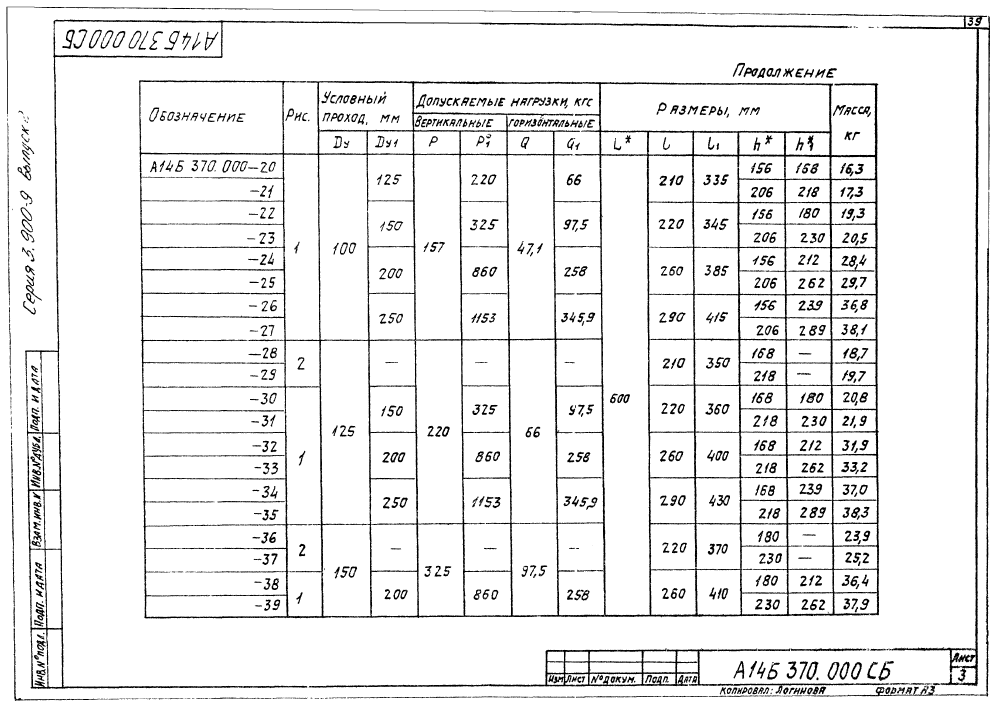 39
А14Б 370 000 СБ
Продолжение
Обозначение Рис. Условный проход, мм Допускаемые нагрузки, кгс Размеры, мм Масса, кг
вертикальные горизонтальные
Dу Dу1 P P₁ Q Q₁ L* l l₁ h* h₁*
А14Б 370.000-20 1 100 125 157 220 47,1 66 600 210 335 156 168 16,3
-21 206 218 17,3
-22 150 325 97,5 220 345 156 180 19,3
-23 206 230 20,5
-24 200 860 258 260 385 156 212 28,4
-25 206 262 29,7
-26 250 1153 345,9 290 415 156 239 36,8
-27 206 289 38,1
-28 2 125 — 220 — 66 — 210 350 168 — 18,7
-29 218 — 19,7
-30 1 150 325 97,5 220 360 168 180 20,8
-31 218 230 21,9
-32 200 860 258 260 400 168 212 31,9
-33 218 262 33,2
-34 250 1153 345,9 290 430 168 239 37,0
-35 218 289 38,3
-36 2 150 — 325 — 97,5 — 220 370 180 — 23,9
-37 230 — 25,2
-38 1 200 860 258 260 410 180 212 36,4
-39 230 262 37,9
Серия 3.900-9 выпуск
Инв.№ подл. Подп. и дата Взам.инв.№ Инв.№ дубл. Подп. и дата
Изм Лист № докум. Подп. Дата
А14Б 370.000 СБ
Лист
3
Копировал: Логинова
Формат А3